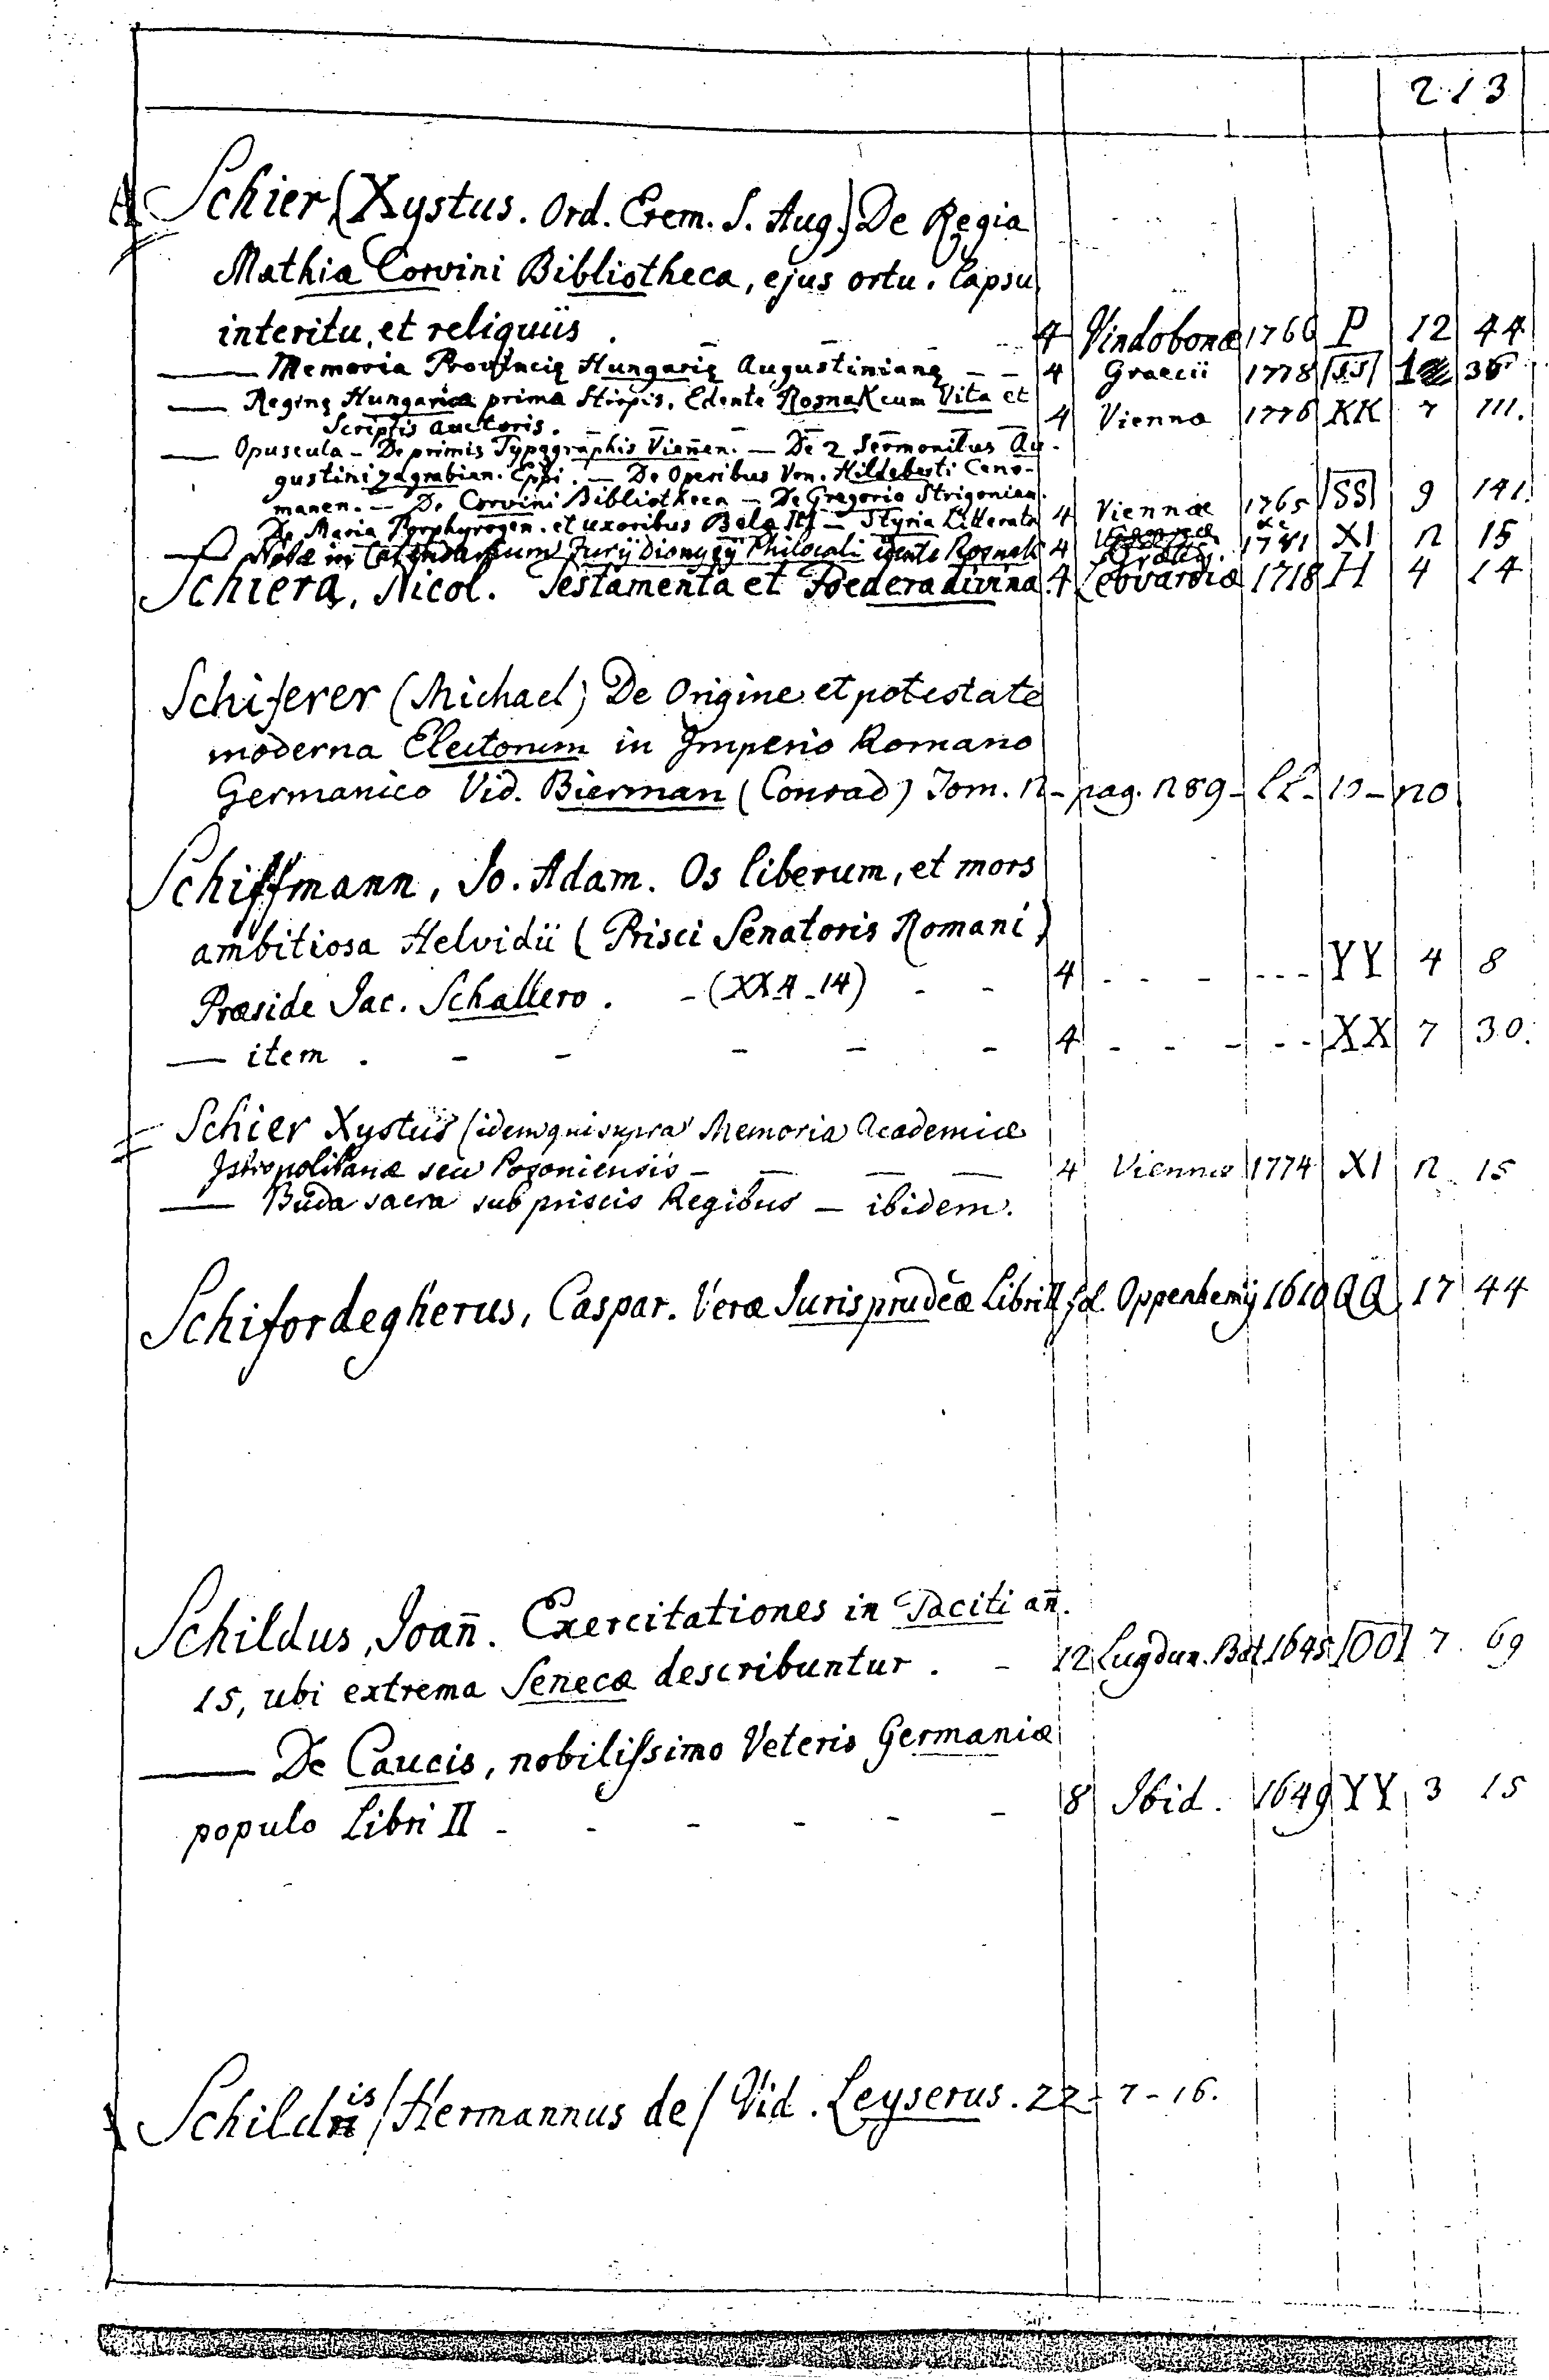 213
Schier (Xystus. Ord. Erem. S. Aug.) De Regia
Mathiæ Corvini Bibliotheca, ejus ortu. lapsu
interitu, et reliquiis . 4 Vindobonæ 1766 P 12 44
— Memoria Provincię Hungarię Augustinianę 4 Graecii 1778 SS 36
— Reginę Hungaricæ primæ Stirpis. Edente Rosnak cum Vita et
Scriptis auctoris. 4 Viennæ 1776 KK 7 111.
— Opuscula – De primis Typographis Vieñen. — De 2 Sermonibus Au-
gustini Zagrabien. Eppi. — De Operibus Ven. Hildeberti Ceno-
manen. — De Corvini Bibliotheca — De Gregorio Strigonien.
De Maria Porphyrogen. et uxoribus Belæ III — Styria Litterata 4 Viennae 1765 SS 9 141.
— Notæ in Calendarium Jurij Dionysij Philocali edente Rosnak 4 1781 XI n 15
Schiera, Nicol. Testamenta et Foedera divina. 4 Leovardiæ 1718 H 4 14
Schiferer (Michael) De Origine et potestate
moderna Electorum in Imperio Romano
Germanico Vid. Bierman (Conrad) Tom. n – pag. n89 – LL – 10 – no
Schiffmann, Jo. Adam. Os liberum, et mors
ambitiosa Helvidii (Prisci Senatoris Romani)
Præside Jac. Schallero . – (XX 4 – 14) – – 4 – – – --- YY 4 8
— item . – – – – – 4 – – – - - - XX 7 30.
Schier Xystus (idem qui supra) Memoria Academiæ
Istropolitanæ seu Posoniensis – — — — 4 Viennæ 1774 XI n 15
— Buda sacra sub priscis Regibus — ibidem.
Schifordegherus, Caspar. Veræ Jurisprudẽæ Libri II fol. Oppenhemij 1610 QQ 17 44
Schildus, Joañ. Exercitationes in Taciti añ.
15, ubi extrema Senecæ describuntur . – 12 Lugdun. Bat. 1645 OO 7 69
— De Caucis, nobilissimo Veteris Germaniæ
populo Libri II – – – – – – 8 Ibid. 1649 YY 3 15
Schildis /Hermannus de/ Vid. Leyserus. 22 – 7 – 16.